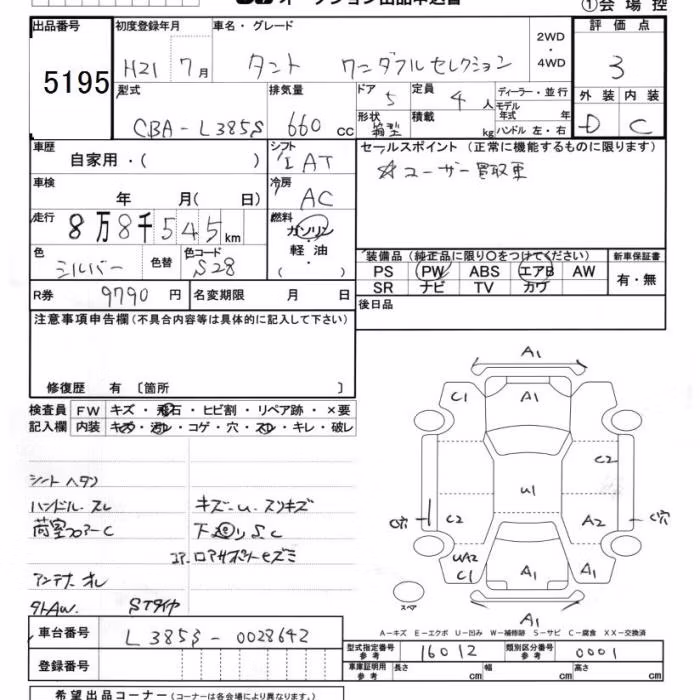 オークション出品申込書
①会場控
出品番号 初度登録年月 車名・グレード 2WD・4WD 評価点
5195 H21 7月 タント ワンダフルセレクション 3
型式 排気量 ドア 5 定員 4人 ディーラー・並行 外装 内装
CBA-L385S 660cc 形状 箱型 積載 kg モデル年式 年 ハンドル 左・右 D C
車歴 自家用・( ) シフト IAT セールスポイント (正常に機能するものに限ります)
車検 年 月( 日) 冷房 AC ☆ユーザー買取車
走行 8万8千545km 燃料 ガソリン・軽油・( )
色 シルバー 色替 色コード S28 装備品 (純正品に限り○をつけてください) 新車保証書
PS PW ABS エアB AW 有・無
SR ナビ TV カワ
R券 9790円 名変期限 月 日 後日品
注意事項申告欄 (不具合内容等は具体的に記入して下さい)
修復歴 有 〔箇所 〕
検査員 FW キズ・飛石・ヒビ割・リペア跡・×要
記入欄 内装 キズ・汚れ・コゲ・穴・スレ・キレ・破レ
シートヘタリ
ハンドル.スレ キズ-u.スリキズ
荷室フロアーC 下廻りSC
コア.ロアサポートキズミ
アンテナオレ
タトAW. STタイヤ
A1
C1 A1
C2
U1
C穴 C2 A2 C穴
UA2
C1 A1 A1
スペア A1
A-キズ E-エクボ U-凹み W-補修跡 S-サビ C-腐食 XX-交換済
車台番号 L385S-0028642
型式指定番号 参考 16012 類別区分番号 参考 0001
登録番号 車庫証明用 参考 長さ cm 幅 cm 高さ cm
希望出品コーナー (コーナーは各会場により異なります。)